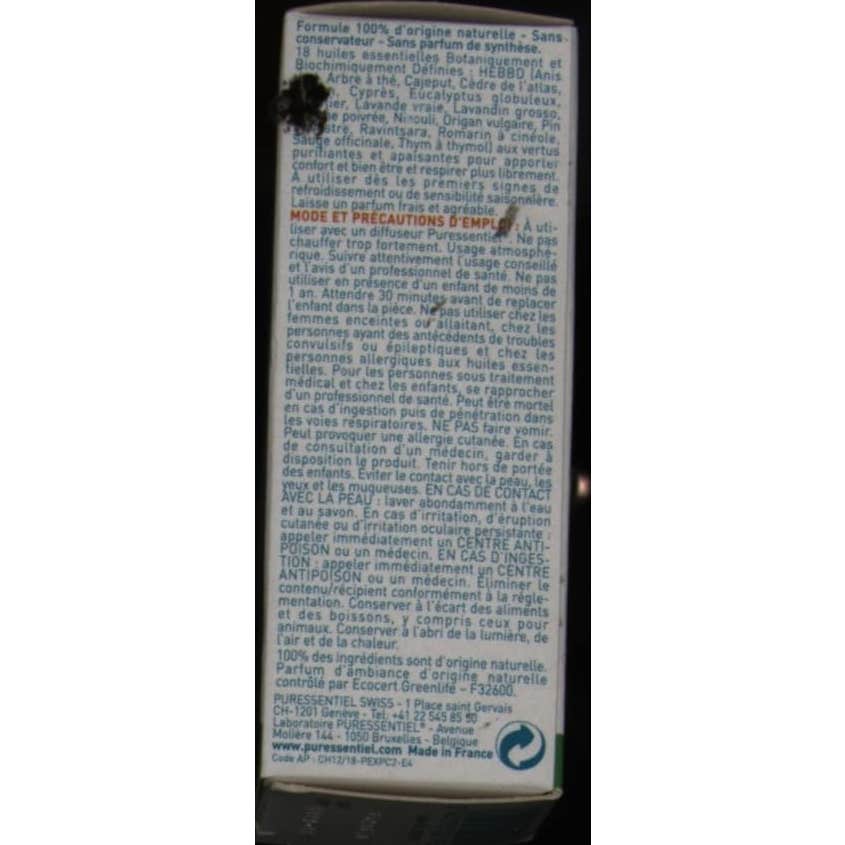 Formule 100% d'origine naturelle - Sans
conservateur - Sans parfum de synthèse.
18 huiles essentielles Botaniquement et
Biochimiquement Définies : HEBBD (Anis
Arbre à thé, Cajeput, Cèdre de l'atlas,
Cyprès, Eucalyptus globuleux,
Lavande vraie, Lavandin grosso,
poivrée, Niaouli, Origan vulgaire, Pin
Ravintsara, Romarin à cinéole,
Sauge officinale, Thym à thymol) aux vertus
purifiantes et apaisantes pour apporter
confort et bien être et respirer plus librement.
À utiliser dès les premiers signes de
refroidissement ou de sensibilité saisonnière.
Laisse un parfum frais et agréable.
MODE ET PRÉCAUTIONS D'EMPLOI : À uti-
liser avec un diffuseur Puressentiel®. Ne pas
chauffer trop fortement. Usage atmosphé-
rique. Suivre attentivement l'usage conseillé
et l'avis d'un professionnel de santé. Ne pas
utiliser en présence d'un enfant de moins de
1 an. Attendre 30 minutes avant de replacer
l'enfant dans la pièce. Ne pas utiliser chez les
femmes enceintes ou allaitant, chez les
personnes ayant des antécédents de troubles
convulsifs ou épileptiques et chez les
personnes allergiques aux huiles essen-
tielles. Pour les personnes sous traitement
médical et chez les enfants, se rapprocher
d'un professionnel de santé. Peut être mortel
en cas d'ingestion puis de pénétration dans
les voies respiratoires. NE PAS faire vomir.
Peut provoquer une allergie cutanée. En cas
de consultation d'un médecin, garder à
disposition le produit. Tenir hors de portée
des enfants. Éviter le contact avec la peau, les
yeux et les muqueuses. EN CAS DE CONTACT
AVEC LA PEAU : laver abondamment à l'eau
et au savon. En cas d'irritation, d'éruption
cutanée ou d'irritation oculaire persistante :
appeler immédiatement un CENTRE ANTI-
POISON ou un médecin. EN CAS D'INGES-
TION : appeler immédiatement un CENTRE
ANTIPOISON ou un médecin. Éliminer le
contenu/récipient conformément à la régle-
mentation. Conserver à l'écart des aliments
et des boissons, y compris ceux pour
animaux. Conserver à l'abri de la lumière, de
l'air et de la chaleur.
100% des ingrédients sont d'origine naturelle.
Parfum d'ambiance d'origine naturelle
contrôlé par Ecocert Greenlife - F32600.
PURESSENTIEL SWISS - 1 Place saint Gervais
CH-1201 Genève - Tel: +41 22 545 85 50
Laboratoire PURESSENTIEL® - Avenue
Molière 144 - 1050 Bruxelles - Belgique
www.puressentiel.com Made in France
Code AP : CH12/18-PEXPC2-E4